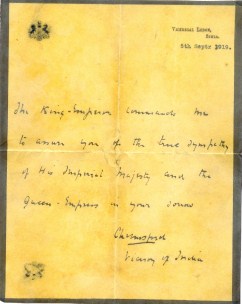 Viceregal Lodge,
Simla.
5th Septr 1918.
The King-Emperor commands me
to assure you of the true sympathy
of His Imperial Majesty and the
Queen-Empress in your sorrow
Chelmsford
Viceroy of India